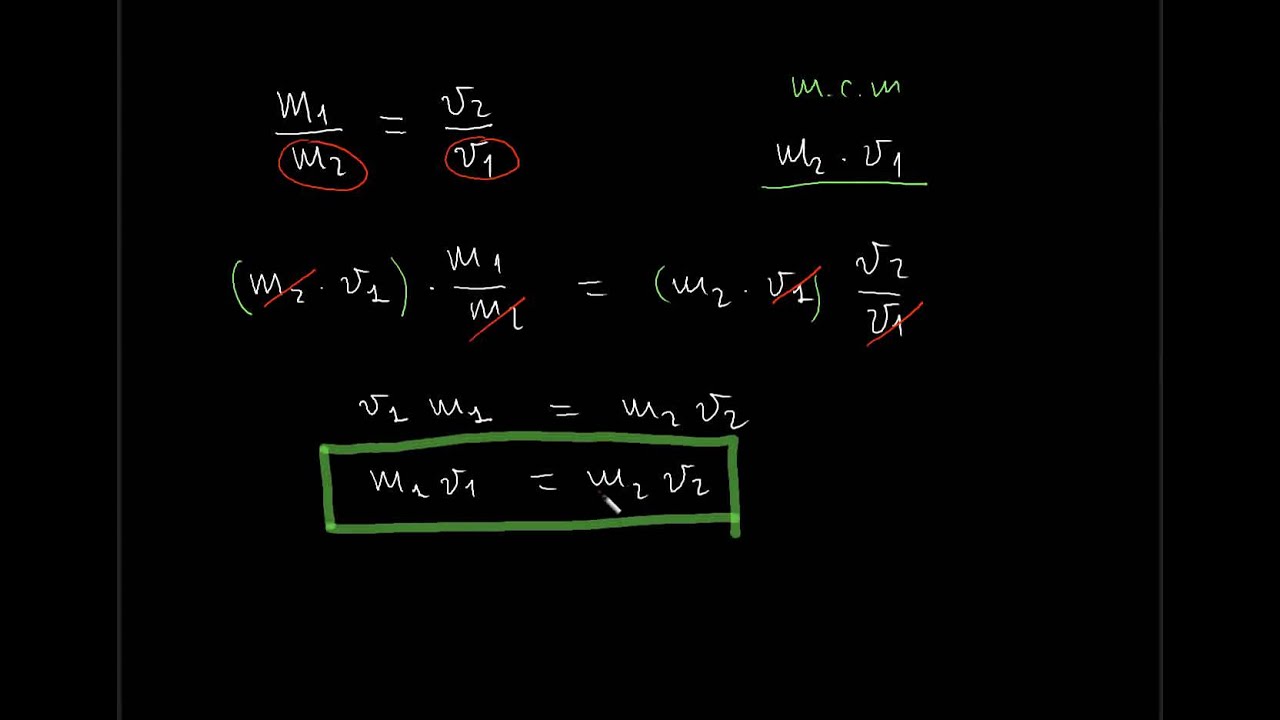 m1/m2 = v2/v1
m.c.m
m2 . v1
(m2 . v1) . m1/m2 = (m2 . v1) v2/v1
v1 m1 = m2 v2
m1 v1 = m2 v2